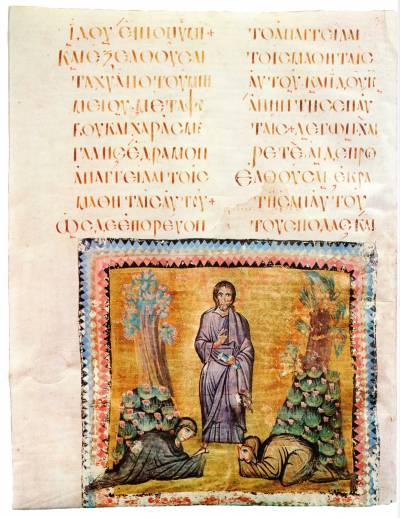 ΙΔΟΥ ΕΙΠΟΝ ΥΜΙΝ+
ΚΑΙ ΕΞΕΛΘΟΥΣΑΙ
ΤΑΧΥ ΑΠΟ ΤΟΥ ΜΝΗ
ΜΕΙΟΥ ΜΕΤΑ ΦΟ
ΒΟΥ ΚΑΙ ΧΑΡΑΣ ΜΕ
ΓΑΛΗΣ ΕΔΡΑΜΟΝ
ΑΠΑΓΓΕΙΛΑΙ ΤΟΙΣ
ΜΑΘΗΤΑΙΣ ΑΥΤΟΥ+
ΩΣ ΔΕ ΕΠΟΡΕΥΟΝ
ΤΟ ΑΠΑΓΓΕΙΛΑΙ
ΤΟΙΣ ΜΑΘΗΤΑΙΣ
ΑΥΤΟΥ ΚΑΙ ΙΔΟΥ
ΑΠΗΝΤΗΣΕΝ ΑΥ
ΤΑΙΣ+ΛΕΓΩΝ ΧΑΙ
ΡΕΤΕ ΑΙ ΔΕ ΠΡΟ
ΕΛΘΟΥΣΑΙ ΕΚΡΑ
ΤΗΣΑΝ ΑΥΤΟΥ
ΤΟΥΣ ΠΟΔΑΣ ΚΑΙ